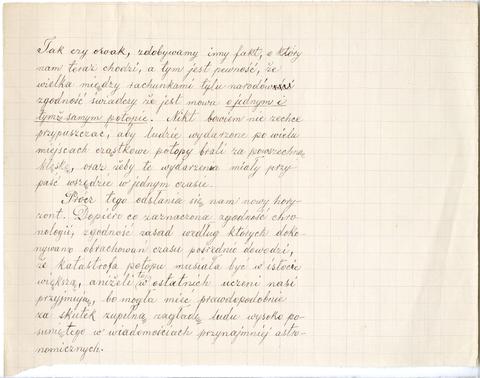 Tak czy owak, zdobywamy inny fakt, o który
nam teraz chodzi, a tym jest pewność, że
wielka między rachunkami tylu narodów
zgodność świadczy że jest mowa o jednym i
tymże samym potopie. Nikt bowiem nie zechce
przypuszczać, aby ludzie wydarzone po wielu
miejscach cząstkowe potopy brali za powszechną
klęskę, oraz żeby te wydarzenia miały przy-
paść wszędzie w jednym czasie.
Prócz tego odsłania się nam nowy hory-
zont. Dopiero co zaznaczona zgodność chro-
nologii, zgodność zasad według których doko-
nywano obrachowań czasu pośrednio dowodzi,
że katastrofa potopu musiała być w istocie
większą, aniżeli to w ostatnich uczeni nasi
przyjmują, bo mogła mieć prawdopodobnie
za skutek zupełną zagładę ludu wysoko po-
suniętego w wiadomościach przynajmniej astro-
nomicznych.